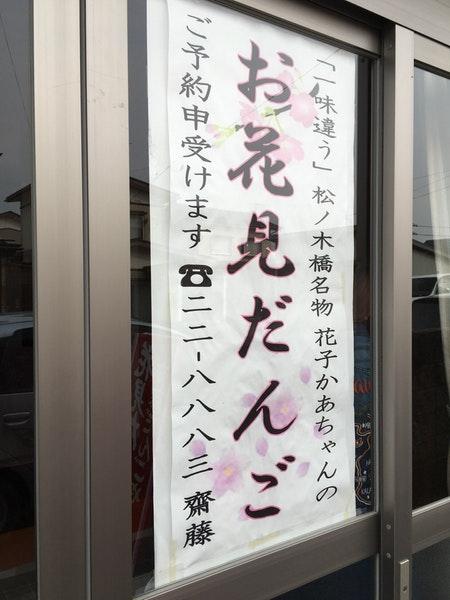 「一味違う」松ノ木橋名物 花子かあちゃんの
お花見だんご
ご予約申受けます ☎二二-八八八三 齋藤